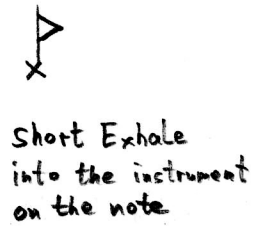 short Exhale
into the instrument
on the note